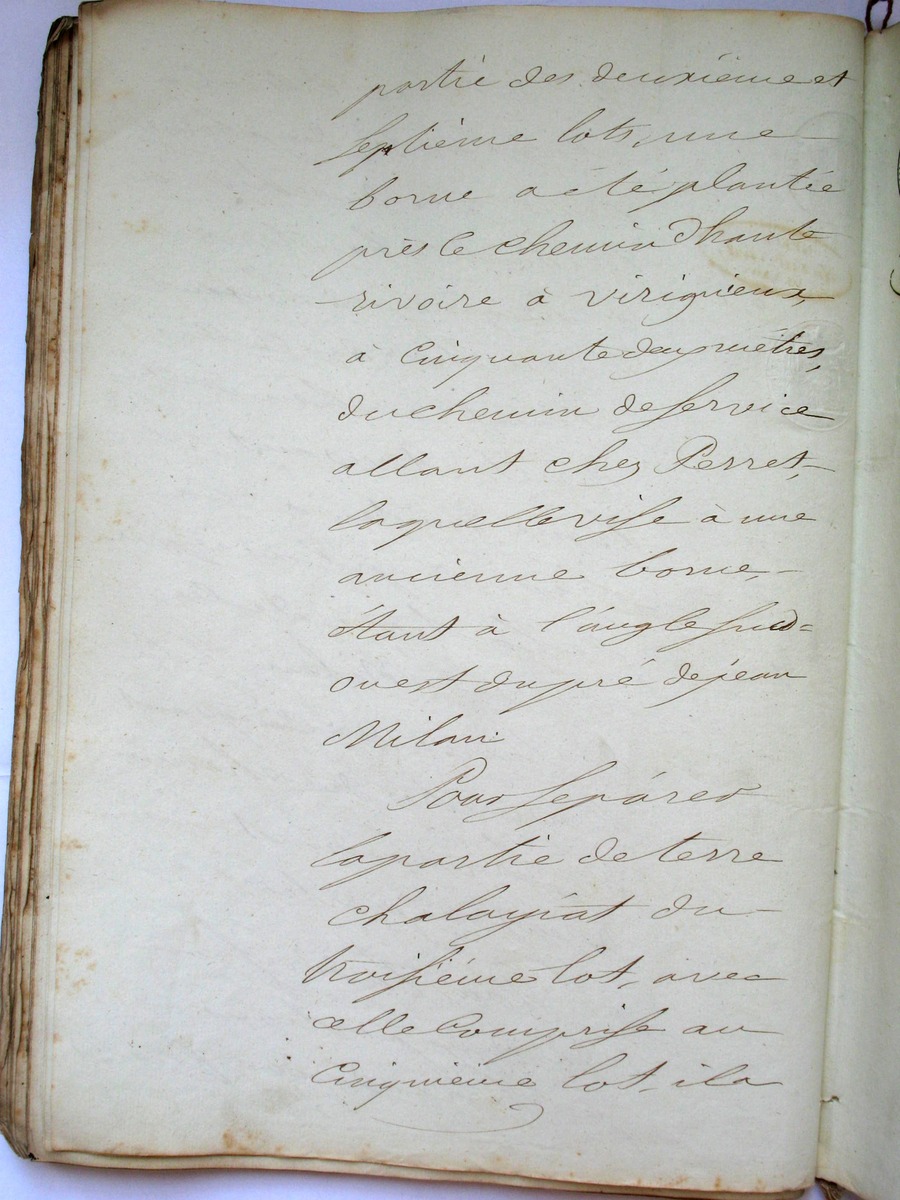 partie des deuxième et
septième lots, une
borne a été plantée
près le chemin d'haute
rivoire à virigneux
à cinquante deux mètres,
du chemin de service
allant chez Perret,
laquelle vise à une
ancienne borne,
étant à l'angle sud=
ouest du pré de jean
Milan.
Pour séparer
la partie de terre
chalayiat du
troisième lot, avec
celle comprise au
cinquième lot, il a